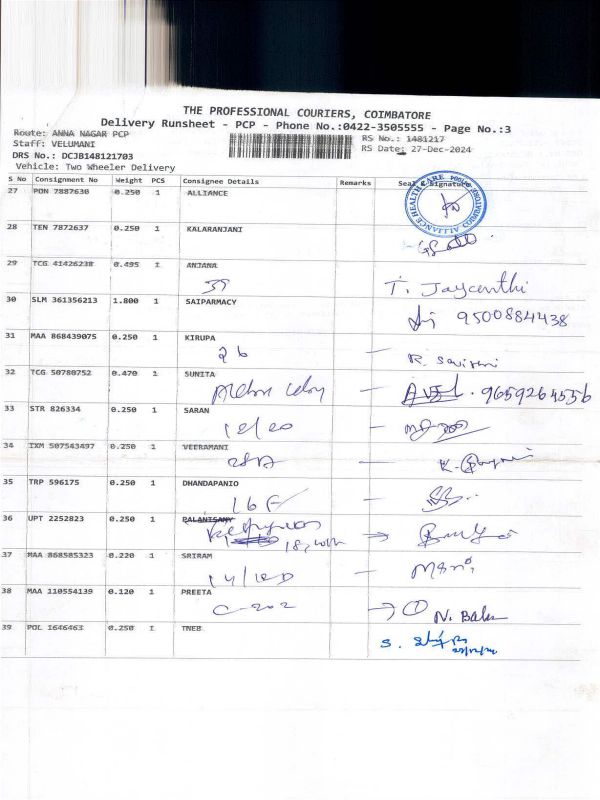 THE PROFESSIONAL COURIERS, COIMBATORE
Delivery Runsheet - PCP - Phone No.:0422-3505555 - Page No.:3
Route: ANNA NAGAR PCP RS No.: 1481217
Staff: VELUMANI RS Date: 27-Dec-2024
DRS No.: DCJB148121703
Vehicle: Two Wheeler Delivery
S No Consignment No Weight PCS Consignee Details Remarks Seal & Signature
27 PON 7887630 0.250 1 ALLIANCE
ALLIANCE HEALTH CARE
28 TEN 7872637 0.250 1 KALARANJANI
29 TCG 41426238 0.495 1 ANJANA
39 T. Jayanthi
30 SLM 361356213 1.800 1 SAIPARMACY
9500884438
31 MAA 868439075 0.250 1 KIRUPA
2b R. Savithri
32 TCG 50780752 0.470 1 SUNITA
9659264556
33 STR 826334 0.250 1 SARAN
12/20
34 IXM 507543497 0.250 1 VEERAMANI
35 TRP 596175 0.250 1 DHANDAPANIO
16F
36 UPT 2252823 0.250 1 PALANISAMY
37 MAA 868585323 0.220 1 SRIRAM
14/12D Mani
38 MAA 110554139 0.120 1 PREETA
C-202 N. Bala
39 POL 1646463 0.250 1 TNEB
S.